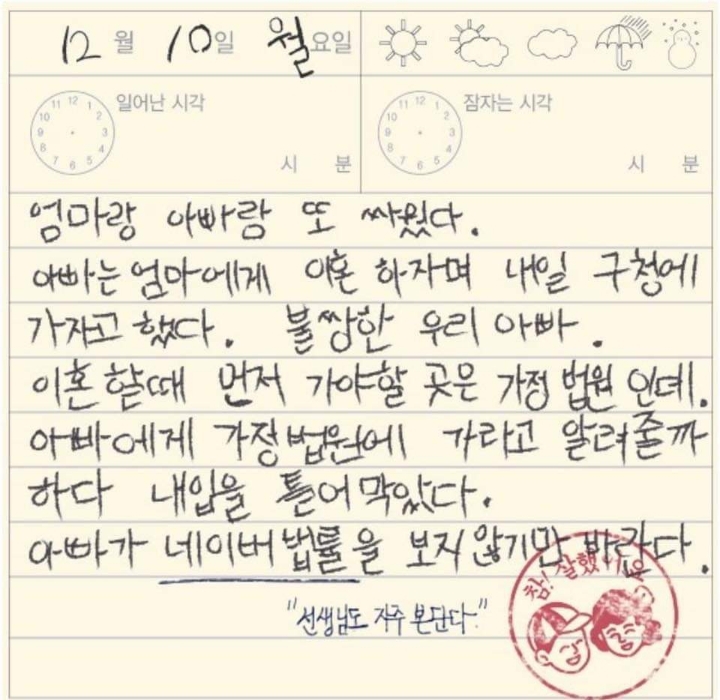 12 월 10 일 월 요일
일어난 시각 잠자는 시각
11 12 1 10 2 9 3 8 4 7 6 5 11 12 1 10 2 9 3 8 4 7 6 5
시 분 시 분
엄마랑 아빠랑 또 싸웠다.
아빠는 엄마에게 이혼 하자며 내일 구청에
가자고 했다. 불쌍한 우리 아빠.
이혼 할때 먼저 가야할 곳은 가정 법원 인데.
아빠에게 가정법원에 가라고 알려줄까
하다 내입을 틀어막았다.
아빠가 네이버 법률을 보지 않기만 바란다.
참! 잘했어요
"선생님도 자주 본단다."